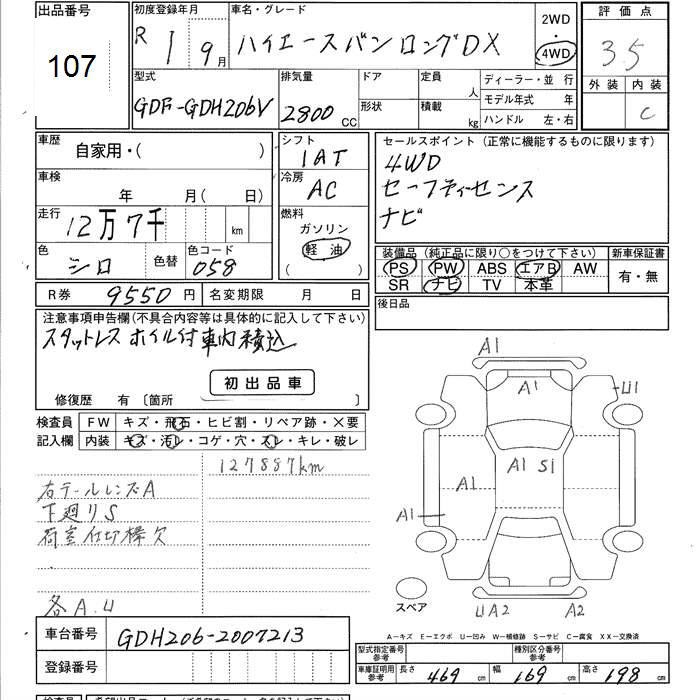 出品番号 初度登録年月 車名・グレード 2WD 評価点
107 R 1 9月 ハイエースバンロングDX 4WD 3.5
外装 内装
C
型式 排気量 ドア 定員 人 ディーラー・並 行
GDF-GDH206V 2800CC 形状 積載 kg モデル年式 年
ハンドル 左・右
車歴 自家用・( )
シフト 1AT
車検 年 月( 日)
冷房 AC
走行 12万7千 km
燃料 ガソリン 軽油 ( )
色 シロ 色替 色コード 058
R券 9550円 名変期限 月 日
セールスポイント(正常に機能するものに限ります)
4WD
セーフティセンス
ナビ
装備品(純正品に限り○をつけて下さい) 新車保証書
PS PW ABS エアB AW 有・無
SR ナビ TV 本革
後日品
注意事項申告欄(不具合内容等は具体的に記入して下さい)
スタットレス ホイル付車内積込
初出品車
修復歴 有〔箇所 〕
検査員 FW キズ・飛石・ヒビ割・リペア跡・×要
記入欄 内装 キズ・汚レ・コゲ・穴・スレ・キレ・破レ
127887km
右テールレンズA
下廻りS
荷室仕切棒欠
各A.U
A1
A1
U1
A1 S1
A1
A1
スペア
U1 A2 A2
A―キズ E―エクボ U―凹み W―補修跡 S―サビ C―腐食 XX―交換済
車台番号 GDH206-2007213
登録番号
型式指定番号 参考 種別区分番号 参考
車庫証明用 参考 長さ 469 cm 幅 169 cm 高さ 198 cm